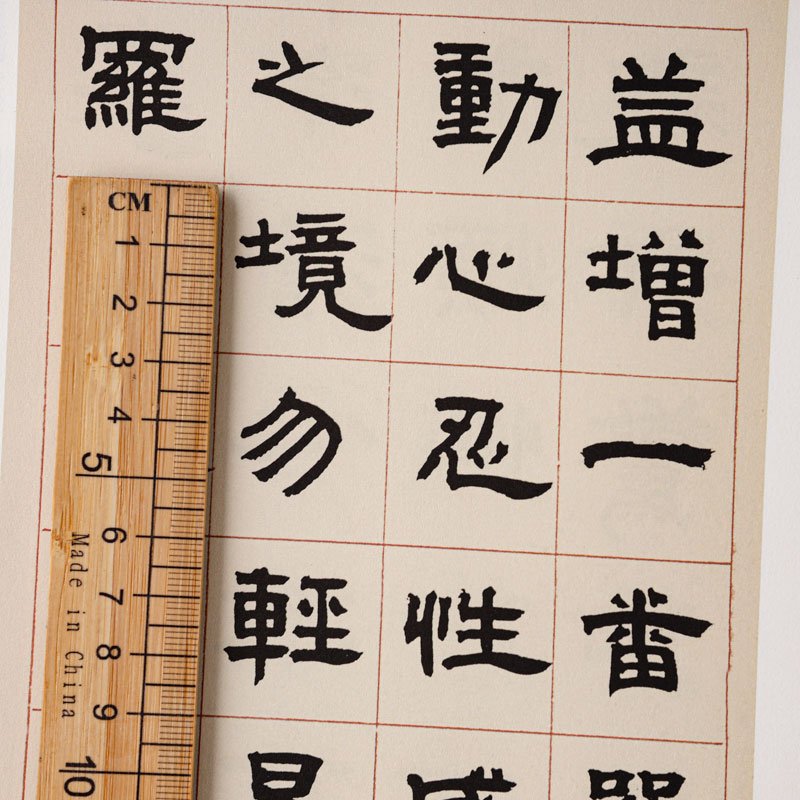 益增一番
動心忍性
之境勿輕
羅
CM
1
2
3
4
5
6
7
8
9
10
Made in China